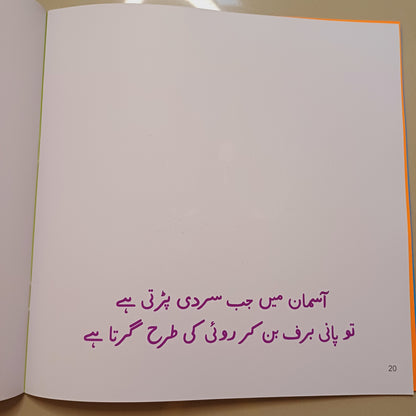 آسمان میں جب سردی پڑتی ہے
تو پانی برف بن کر روئی کی طرح گرتا ہے
20